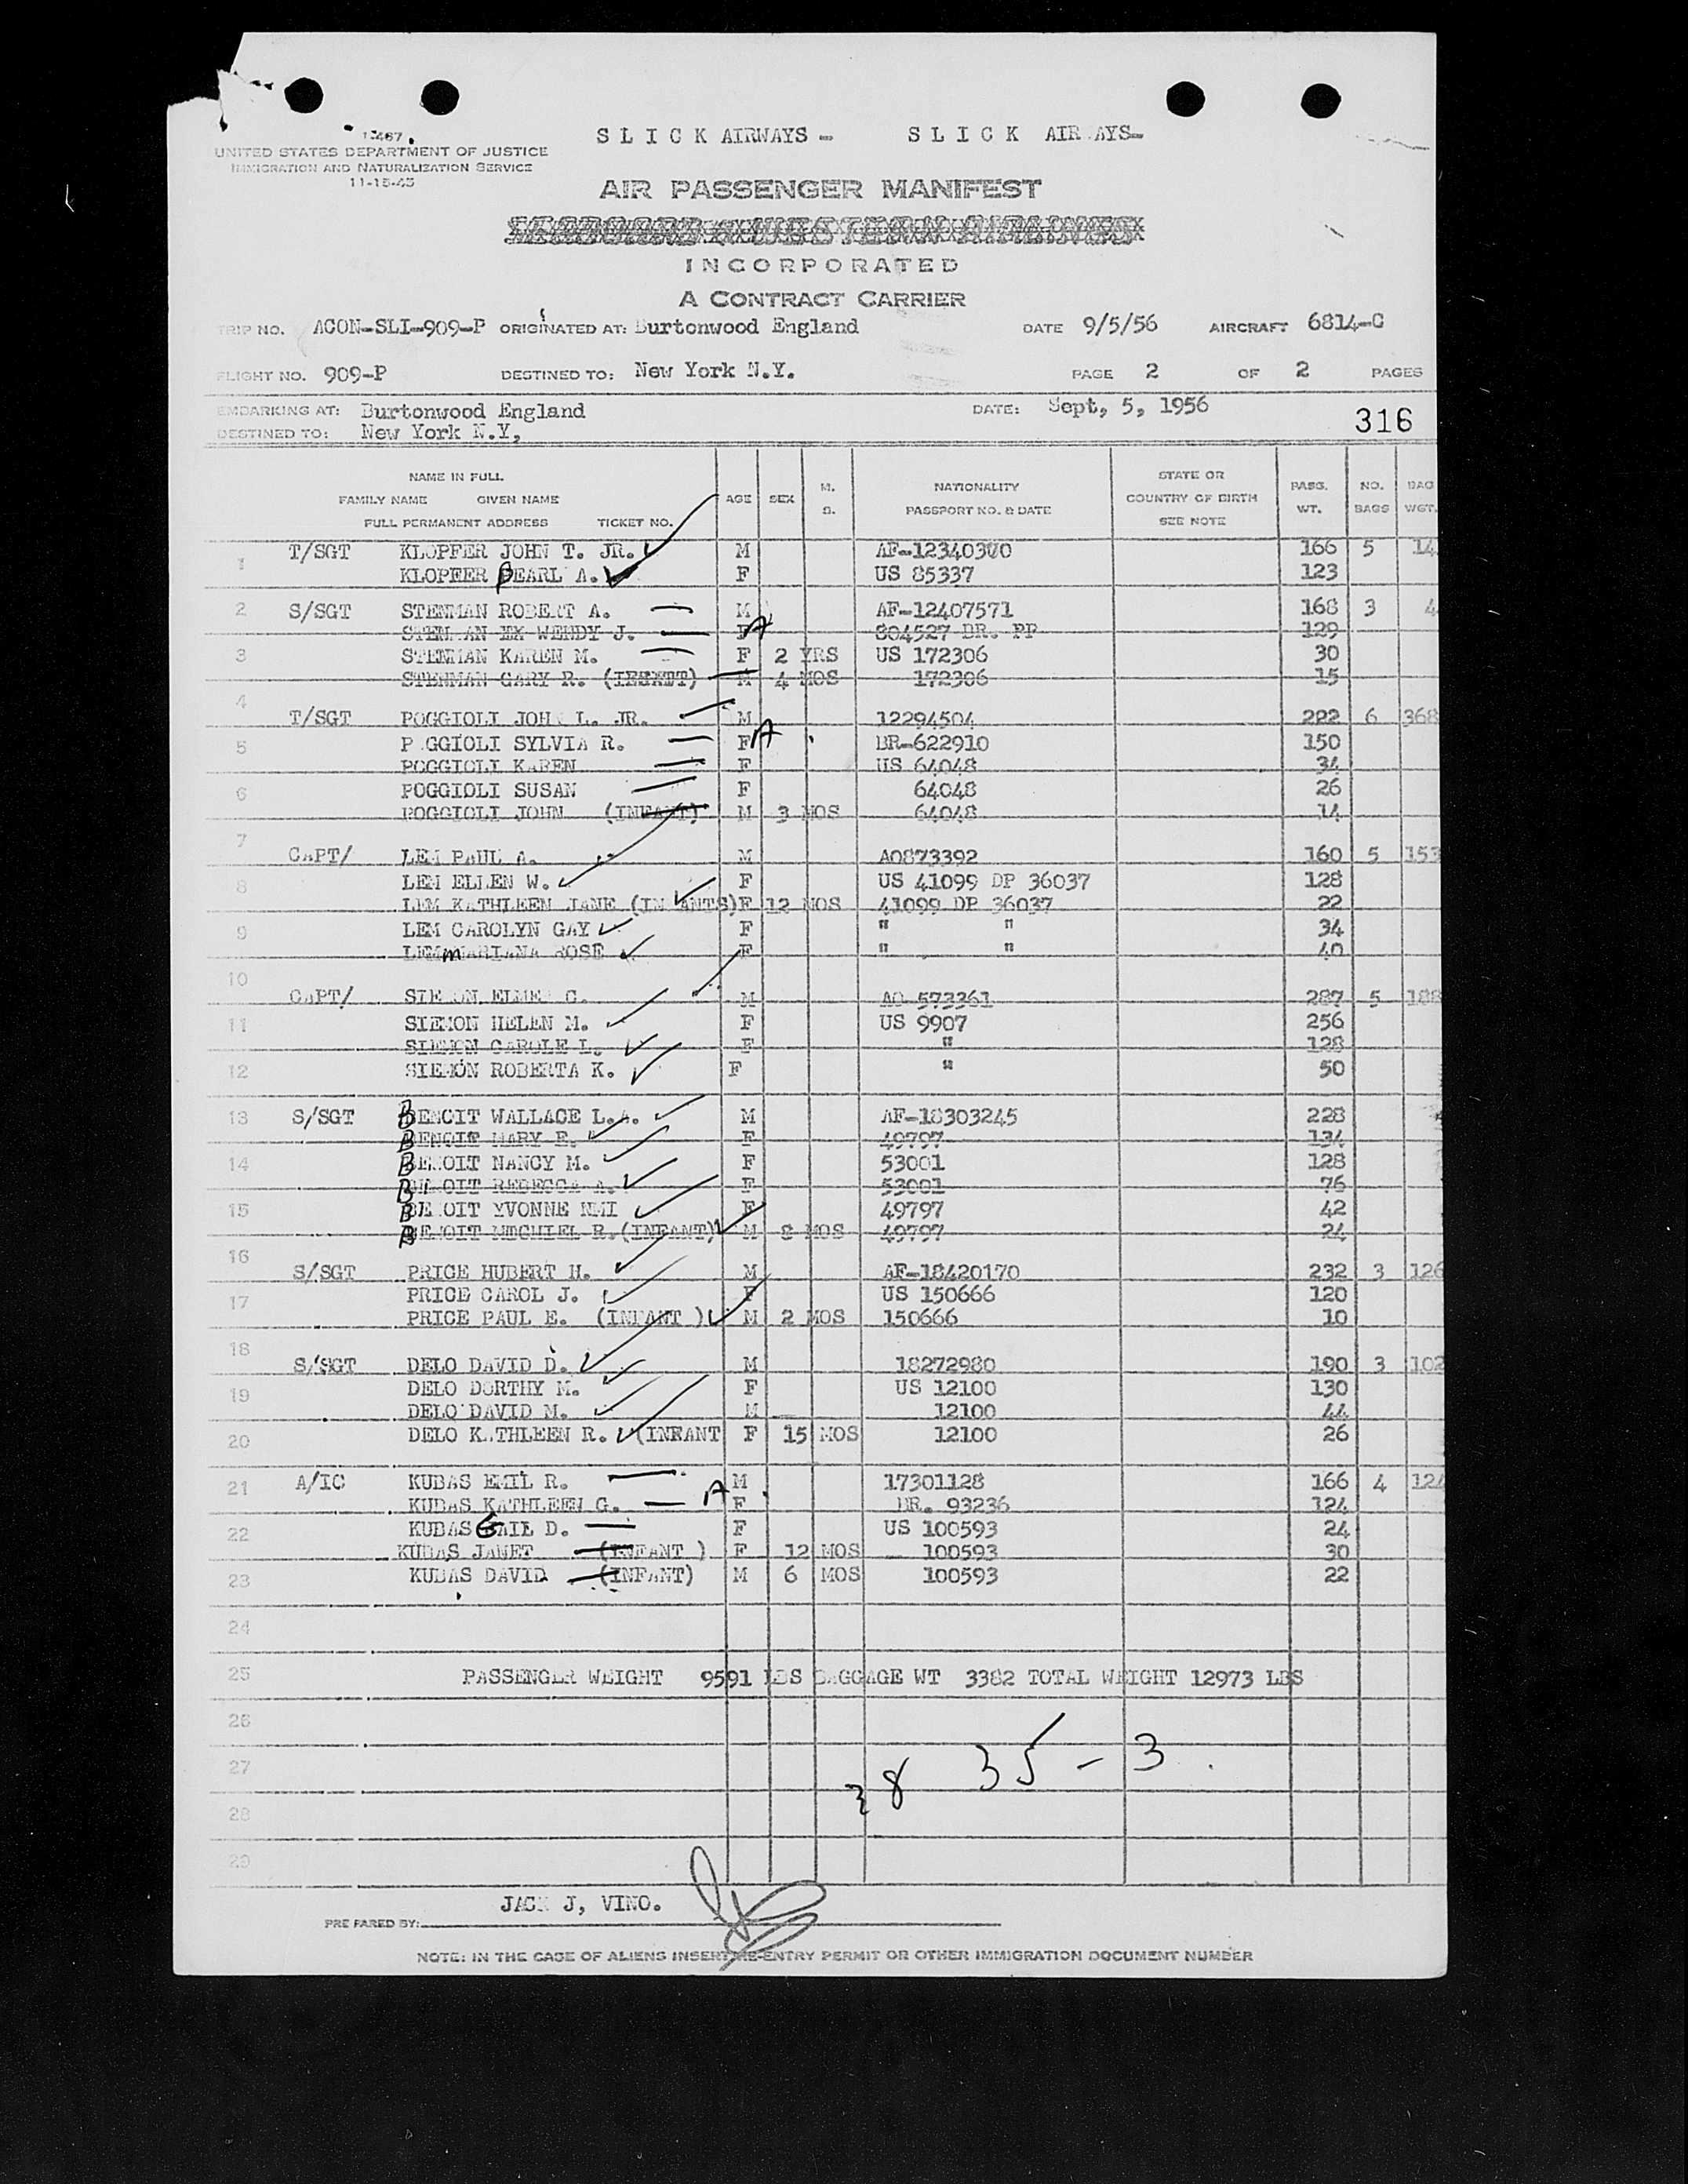 SLICK AIRWAYS - SLICK AIR AYS-
UNITED STATES DEPARTMENT OF JUSTICE
IMMIGRATION AND NATURALIZATION SERVICE
11-15-45
AIR PASSENGER MANIFEST
INCORPORATED
A CONTRACT CARRIER
TRIP NO. ACON-SLI-909-P ORIGINATED AT: Burtonwood England DATE 9/5/56 AIRCRAFT 6814-C
FLIGHT NO. 909-P DESTINED TO: New York N.Y. PAGE 2 OF 2 PAGES
EMBARKING AT: Burtonwood England DATE: Sept, 5, 1956
DESTINED TO: New York N.Y, 316
NAME IN FULL
FAMILY NAME GIVEN NAME
FULL PERMANENT ADDRESS TICKET NO.
AGE SEX M. S. NATIONALITY PASSPORT NO. & DATE STATE OR COUNTRY OF BIRTH SEE NOTE PASS. WT. NO. BAGS BAG WGT.
1 T/SGT KLOPFER JOHN T. JR. M AF-12340370 166 5 14
KLOPFER PEARL A. F US 85337 123
2 S/SGT STENMAN ROBERT A. M AF-12407571 168 3 4
STEN AN WENDY J. F A 804527 BR. PP 129
3 STENMAN KAREN M. F 2 YRS US 172306 30
STENMAN GARY R. (INFANT) M 4 MOS 172306 15
4 T/SGT POGGIOLI JOHN L. JR. M 12294504 222 6 368
5 P GGIOLI SYLVIA R. F A BR-622910 150
POGGIOLI KAREN F US 64048 34
6 POGGIOLI SUSAN F 64048 26
POGGIOLI JOHN (INFANT) M 3 MOS 64048 14
7 CAPT/ LEM PAUL A. M AO873392 160 5 153
8 LEM ELLEN W. F US 41099 DP 36037 128
LEM KATHLEEN JANE (IN ANTS) F 12 MOS 41099 DP 36037 22
9 LEM CAROLYN GAY F " " 34
LEM MARIANA ROSE F " " 40
10 CAPT/ SIEMON ELMER C. M AO 573361 287 5 188
11 SIEMON HELEN M. F US 9907 256
SIEMON CAROLE L. F " 128
12 SIEMON ROBERTA K. F " 50
13 S/SGT BENOIT WALLACE L.A. M AF-18303245 228
BENOIT MARY E. F 49797 134
14 BENOIT NANCY M. F 53001 128
BENOIT REBECCA A. F 53001 76
15 BENOIT YVONNE NMI F 49797 42
BENOIT MICHIEL R. (INFANT) M 8 MOS 49797 24
16 S/SGT PRICE HUBERT H. M AF-18420170 232 3 126
17 PRICE CAROL J. F US 150666 120
PRICE PAUL E. (INFANT ) M 2 MOS 150666 10
18 S/SGT DELO DAVID D. M 18272980 190 3 102
19 DELO DORTHY M. F US 12100 130
DELO DAVID M. M 12100 44
20 DELO K.THLEEN R. (INFANT F 15 MOS 12100 26
21 A/1C KUBAS EMIL R. M 17301128 166 4 124
KUBAS KATHLEEN G. A F BR. 93236 124
22 KUBAS GAIL D. F US 100593 24
KUBAS JANET (INFANT ) F 12 MOS 100593 30
23 KUBAS DAVID (INFANT) M 6 MOS 100593 22
24
25 PASSENGER WEIGHT 9591 LBS BAGGAGE WT 3382 TOTAL WEIGHT 12973 LBS
26
27 35 - 3
38
28
29
JACK J, VINO.
PREPARED BY:
NOTE: IN THE CASE OF ALIENS INSERT RE-ENTRY PERMIT OR OTHER IMMIGRATION DOCUMENT NUMBER